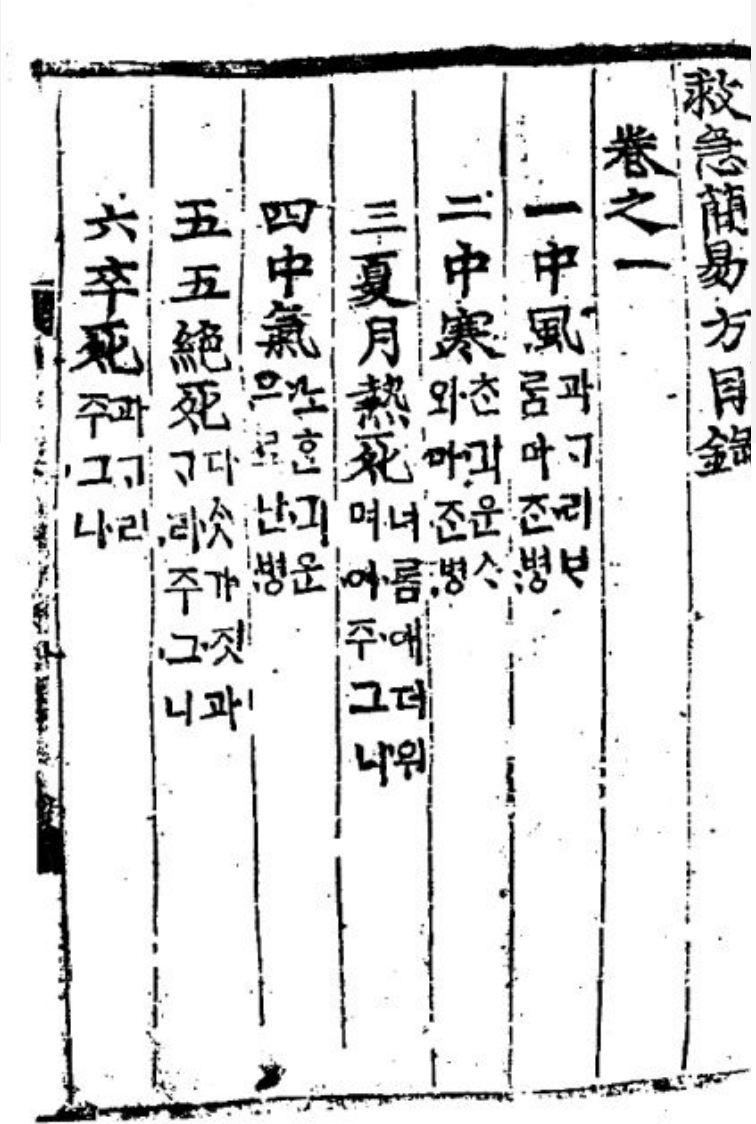 救急簡易方目錄
卷之一
一中風 과ᄀᆞ리ᄇᆞᄅᆞᆷ마ᄌᆞᆫ병
二中寒 ᄎᆞᆫ긔운ᄉᆞ외마ᄌᆞᆫ병
三夏月熱死 녀름에더위며여주그니
四中氣 노ᄒᆞᆫ긔운으로난병
五五絶死 다ᄉᆞᆺ가짓과ᄀᆞ리주그니
六卒死 과ᄀᆞ리주그니